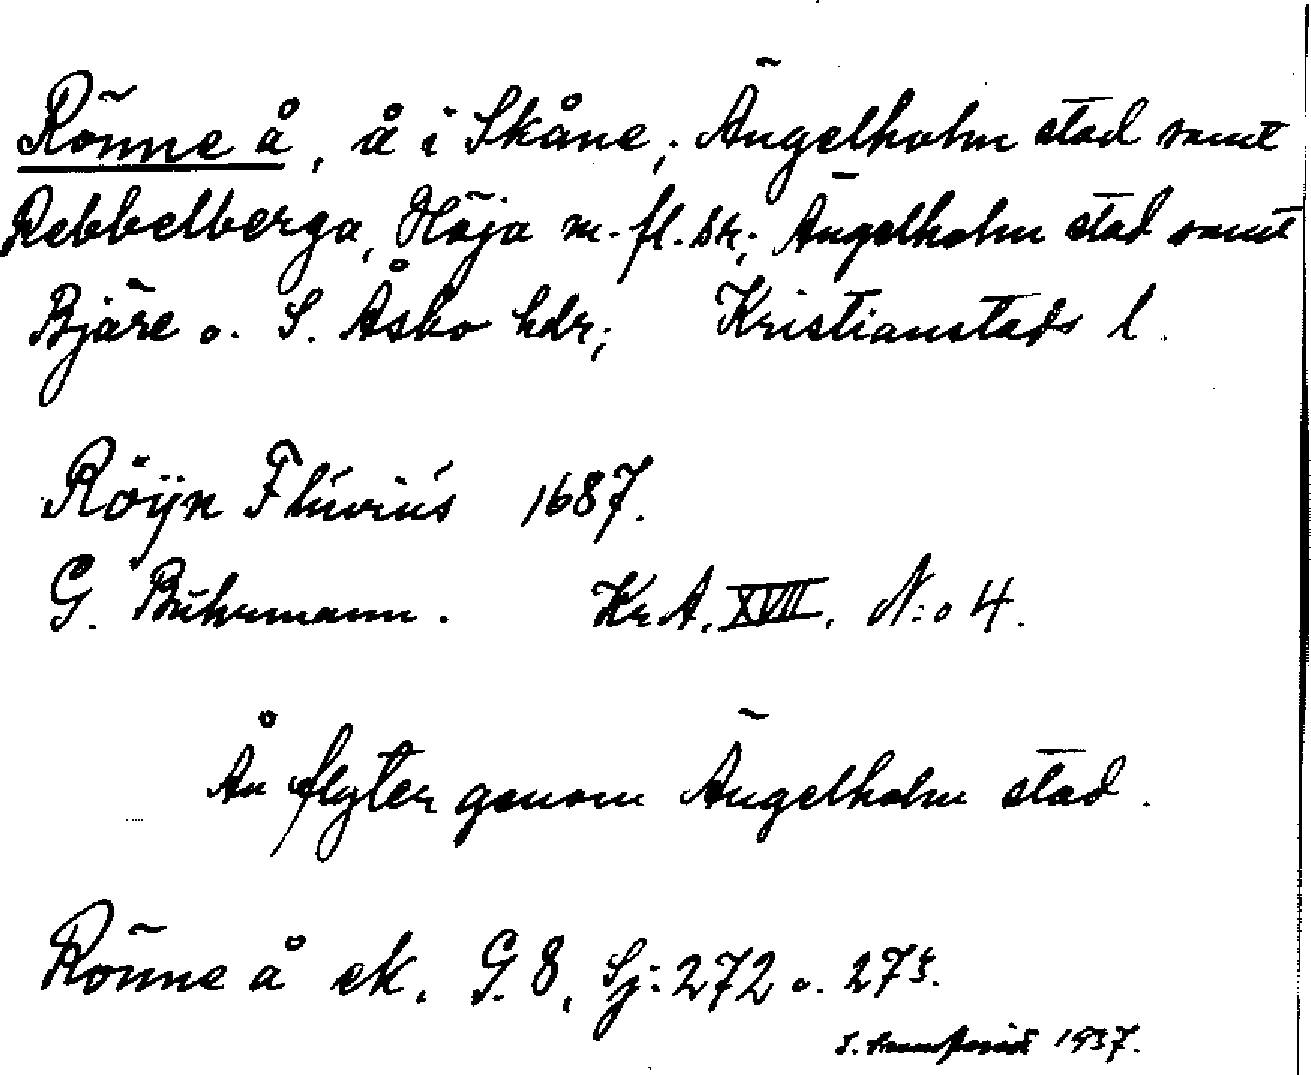 Rönne å, å i Skåne; Ängelholm stad samt
Rebbelberga, Höja m. fl. sk; Ängelholm stad samt
Bjäre o. S. Åsbo hdr; Kristianstads l.
Röÿn Flúviús 1687.
G. Buhrmann. Kr A. XVII. N:o 4.
Ån flyter genom Ängelholm stad.
Rönne å ek. G. 8, Sj: 272 o. 275.
1937.